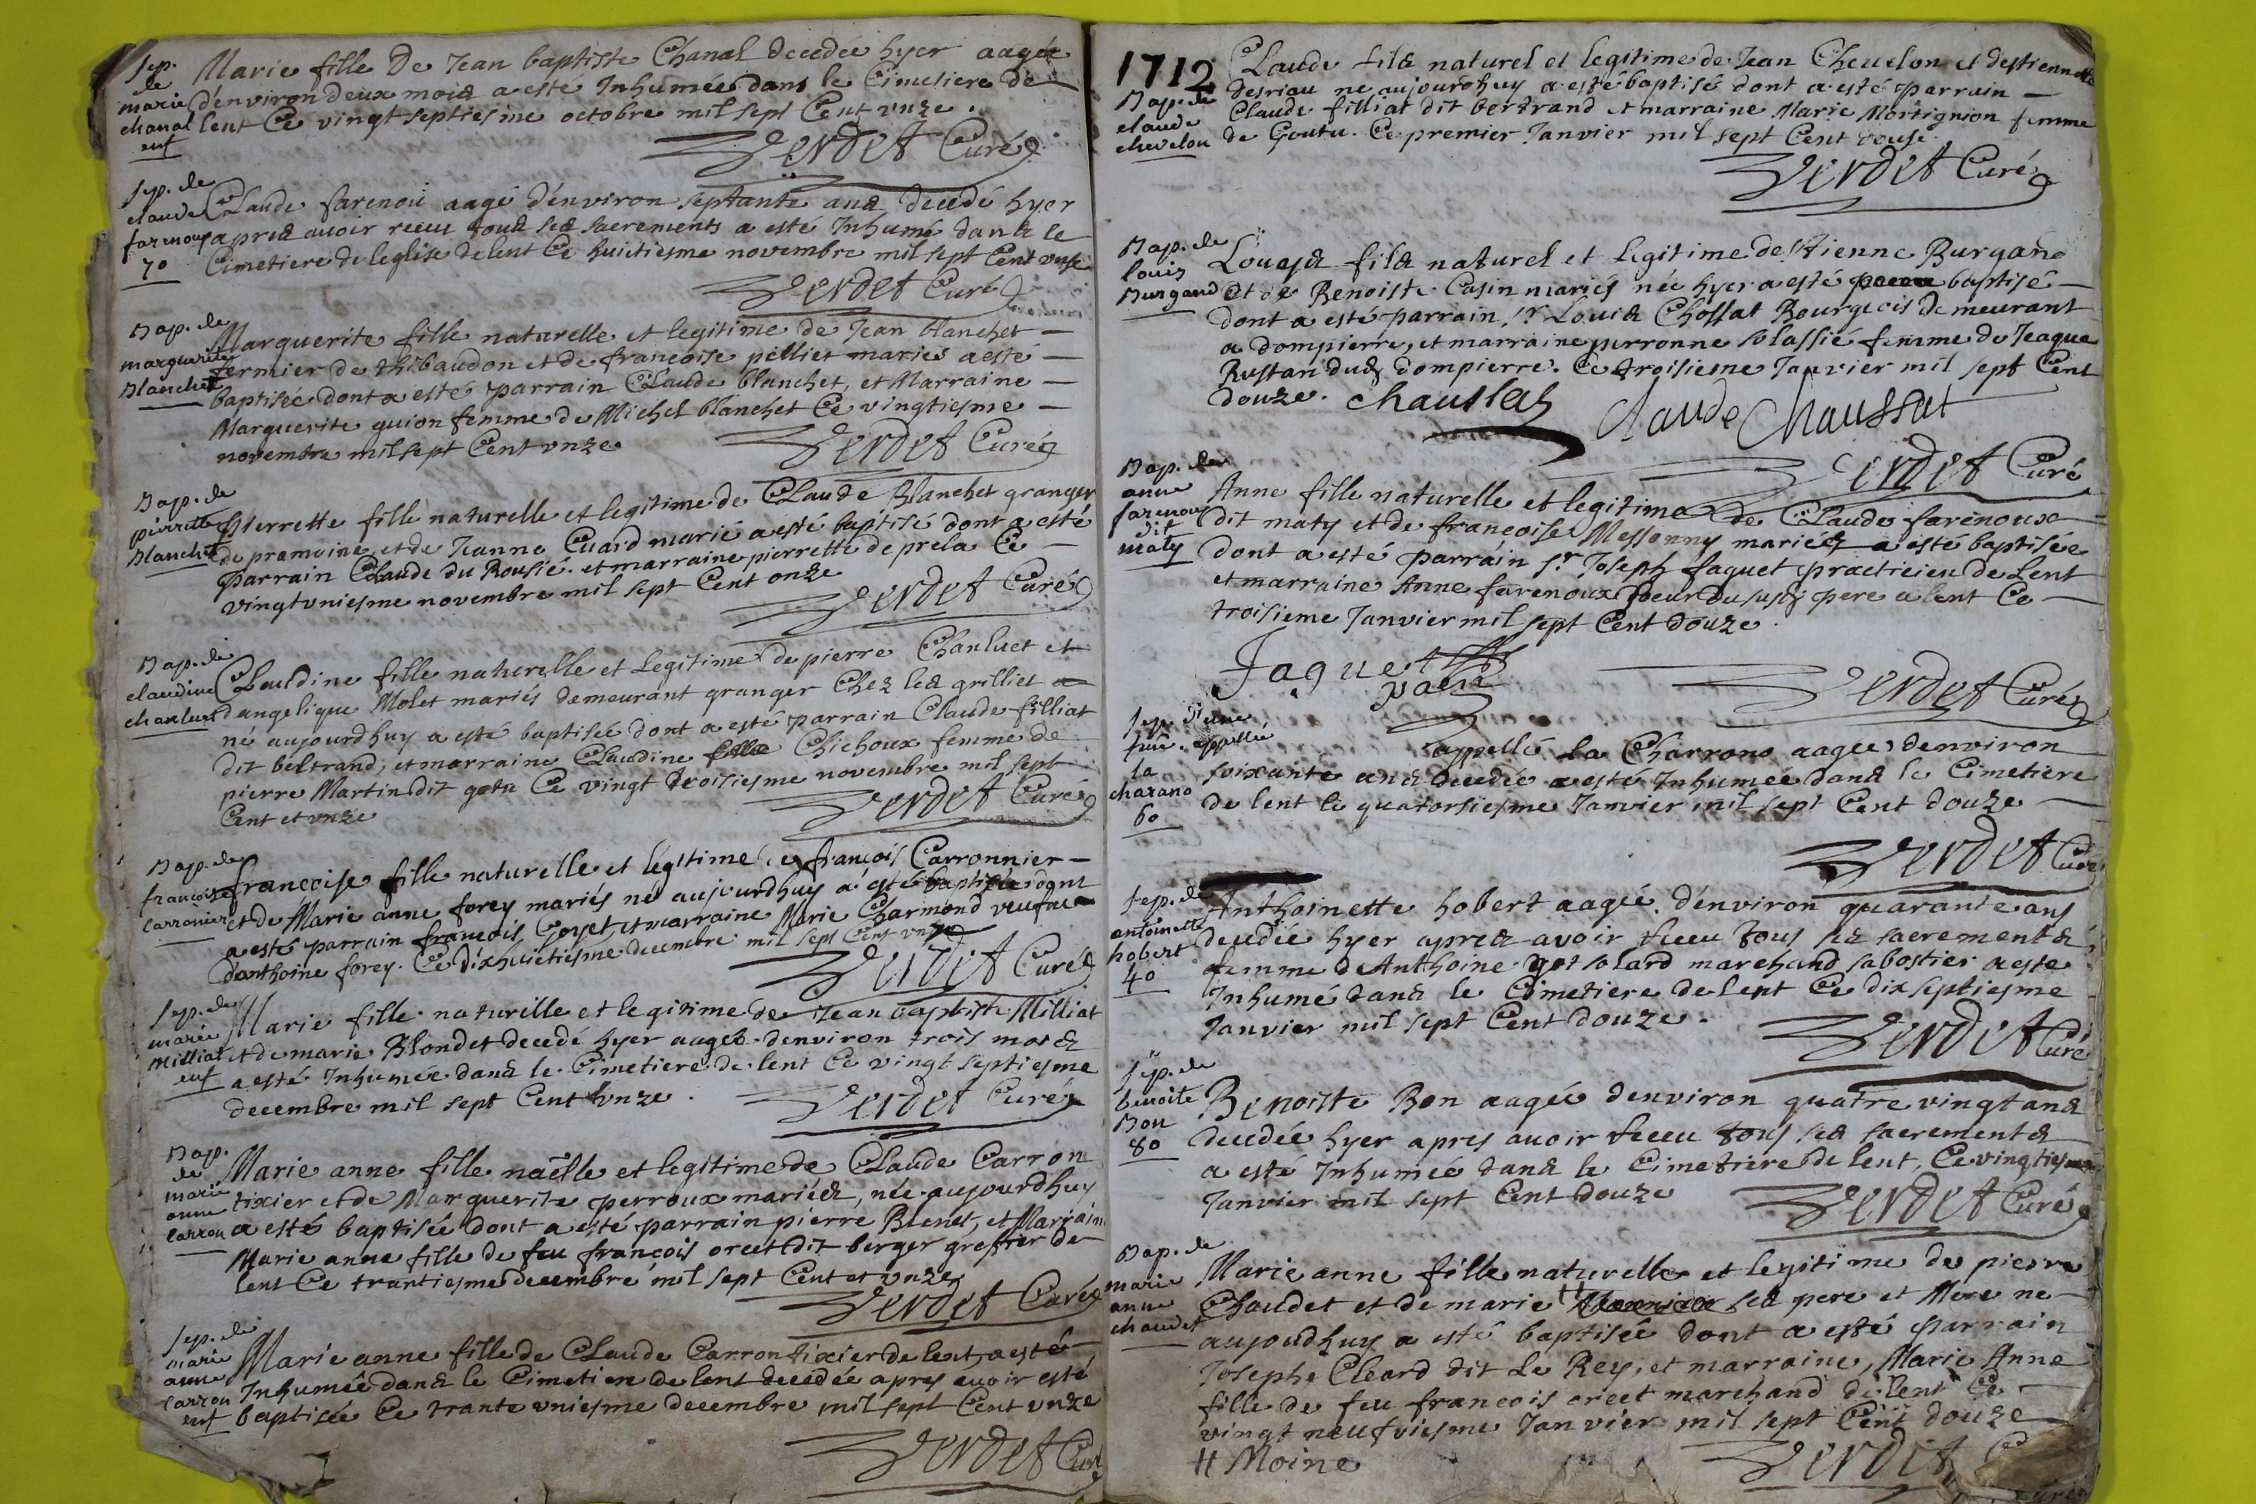 Sep.
de
marie
chanal
enf
Marie fille De Jean baptiste Chanal decedée hyer aagée
d'environ deux mois a esté Inhumée dans le Cimetiere de
lent Ce vingt septiesme octobre mil sept Cent vnze.
Verdet Curé
Sep. de
claude
farenoux
70
Claude farenou aagé d'environ septante ans decedé hyer
apres auoir receu tous ses sacrements a esté Inhumé dans le
Cimetiere de leglise de lent Ce huictiesme novembre mil sept Cent vnse
Verdet Curé
Bap. de
marguerite
Blanchet
Marguerite fille naturelle et legitime de Jean blanchet
fermier de thibaudon et de francoise pelliet mariés a esté
baptisée dont a esté parrain Claude blanchet, et Marraine
Marguerite guion femme de Michel blanchet Ce vingtiesme
novembre mil sept Cent vnze
Verdet Curé
Bap. de
pierrette
Blanchet
Pierrette fille naturelle et legitime de Claude Blanchet granger
de pramoine et de Jeanne Cuard marié a esté baptisé dont a esté
parrain Claude du Rousié. et marraine pierrette de prela Ce
vingt vniesme novembre mil sept Cent onze
Verdet Curé
Bap. de
claudine
chanluet
Clauldine fille naturelle et Legitime de pierre Chanluet et
dangelique Molet mariés demeurant granger Chez les grilliet
né aujourdhuy a esté baptisée dont a esté parrain Claude filliat
dit beltrand, et marraine Claudine Chichoux femme de
pierre Martin dit gotu Ce vingt troisiesme novembre mil sept
Cent et vnze
Verdet Curé
Bap. de
francoise
carronier
francoise fille naturelle et legitime de francois Carronnier
et de Marie anne forey mariés né aujourdhuy a esté baptisée dont
a esté parrain francois Goyet et marraine Marie Charmond veufue
danthoine forey. Ce dixhuictiesme decembre mil sept Cent vnze
Verdet Curé
Sep. de
marie
Milliat
enf
Marie fille naturelle et legitime de Jean baptiste Milliat
et de marie Blondet decedé hyer aagée denviron trois mois
a esté Inhumée dans le Cimetiere de lent Ce vingt septiesme
decembre mil sept Cent vnze.
Verdet Curé
Bap.
de
marie
anne
carron
Marie anne fille naëlle et legitime de Claude Carron
tixier et de Marguerite perroux mariés, née aujourdhuy
a esté baptisée dont a esté parrain pierre Brenet, et Marraine
Marie anne fille de feu francois orcet dit berger greffier de
lent Ce trantiesme decembre mil sept Cent et vnze
Verdet Curé
Sep. de
marie
anne
carron
enf
Marie anne fille de Claude Carron tixier de lent, a esté
Inhumée dans le Cimetiere de lent decedée apres auoir esté
baptisée Ce trante vniesme decembre mil sept Cent vnze
Verdet Curé
1712
Bap. de
claude
chevelon
Claude fils naturel et legitime de Jean Cheuelon et destiennette
desriau ne aujourdhuy a esté baptisé dont a esté parrain
Claude filliat dit bertrand et marraine Marie Mortignion femme
de Goutu. Ce premier Janvier mil sept Cent douse
Verdet Curé
Bap. de
louis
Burgand
Louys fils naturel et legitime destienne Burgand
et de Benoiste Casin mariés née hyer a esté baptisé
dont a esté parrain Sr Louis Chossat Bourgeois demeurant
a dompierre, et marraine perronne solassié femme de Jeaque
Rustan dud dompierre. Ce troisieme Janvier mil sept Cent
douze. Chaussat Claude Chaussat
Verdet Curé
Bap. de
anne
farenoux
dit
maty
Anne fille naturelle et legitime de Claude farenoux
dit maty et de francoise Messonny mariés a esté baptisée
dont a esté parrain Sr Joseph Jaguet practicien de Lent
et marraine Anne farenoux soeur du susd pere a lent Ce
troisieme Janvier mil sept Cent douze.
Jaguet
parin
Verdet Curé
Sep. d'une
appellée
la
charano
60
appellé la Charrono aagée denviron
soixante ans decedée a esté Inhumée dans le Cimetiere
de lent le quatorsiesme Janvier mil sept Cent douze
Verdet Curé
Sep. de
antoinette
hobert
40
Anthoinette hobert aagée d'environ quarante ans
decedée hyer apres avoir receu tous ses sacrements
femme de Anthoine solard marchand sabostier a este
Inhumé dans le Cimetiere de lent Ce dix septiesme
Janvier mil sept Cent douze.
Verdet Curé
Sep. de
benoite
Bon
80
Benoiste Bon aagée denviron quatre vingt ans
decedée hyer apres auoir receu tous ses sacrements
a esté Inhumée dans le Cimetiere de lent, Ce vingtiesme
Janvier mil sept Cent douze
Verdet Curé
Bap. de
marie
anne
chaudet
Marie anne fille naturelle et legitime de pierre
Chaudet et de marie # ses pere et Mere ne
aujoudhuy a esté baptisée dont a esté parrain
Josephe Cleard dit Le Rey, et marraine, Marie Anne
fille de feu francois orcet marchand de lent Ce
vingt neufviesme Janvier mil sept Cent douze
# Moine
Verdet